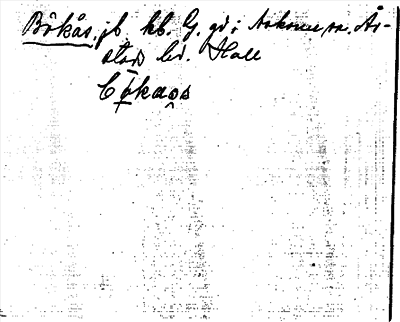 Bökås, jb kb. G. gd i Askome sn. År-
stad hd. Hall